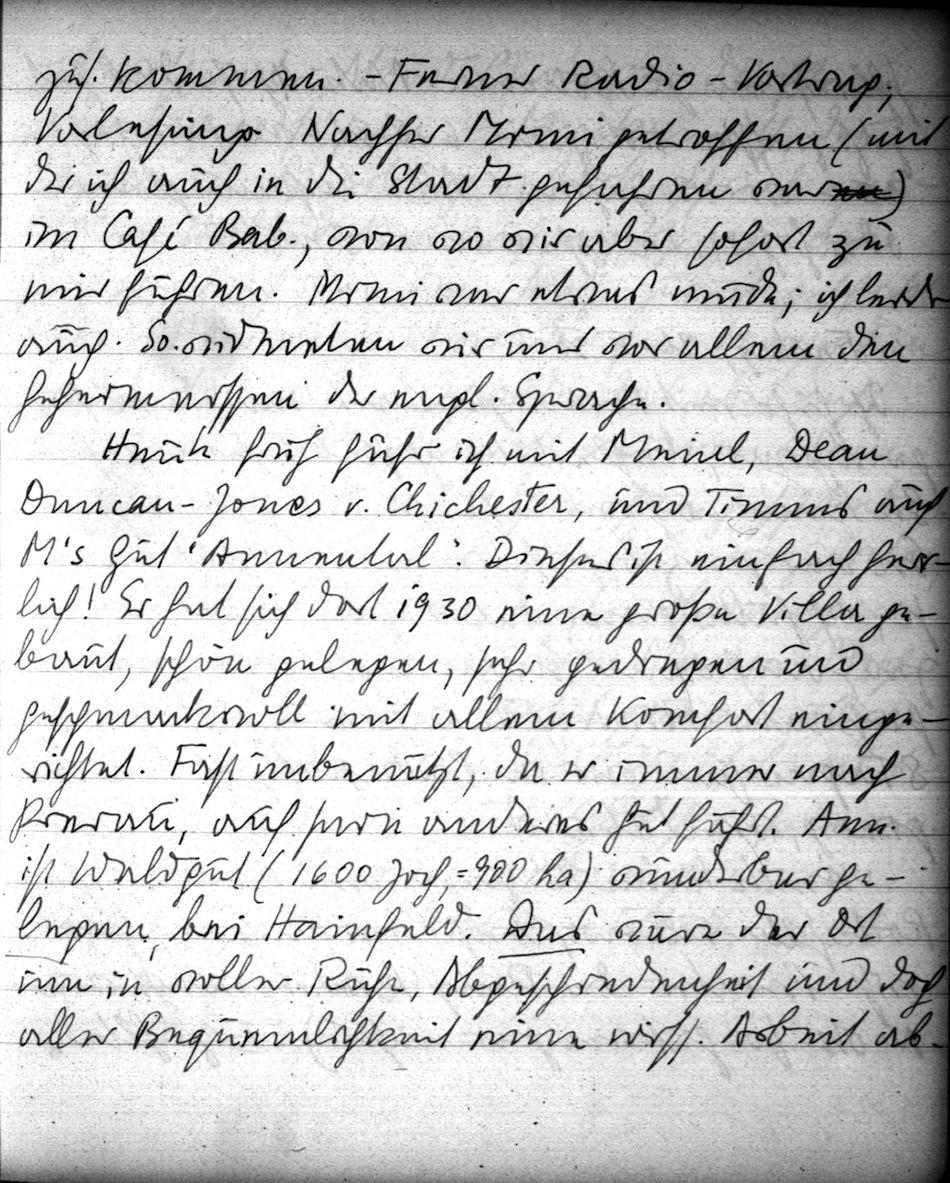 zus. kommen. – Ferner Radio-Vortrag;
Vorlesung. Nachher Mimi getroffen (mit
der ich auch in die Stadt gefahren war)
im Café Bab., von wo wir aber sofort zu
mir fuhren. Mimi war etwas müde; ich leider
auch. So widmeten wir uns vor allem den
Geheimnissen der engl. Sprache.
Heute früh fuhr ich mit Meinl, Dean
Duncan-Jones v. Chichester, und Timms auf
M's Gut 'Annental'. Dieses ist einfach herr-
lich! Er hat sich dort 1930 eine große Villa ge-
baut, schön gelegen, sehr gediegen und
geschmackvoll mit allem Komfort einge-
richtet. Fast unbenützt, da er immer nach
Prerau, auf sein anderes Gut fährt. Ann.
ist Waldgut (1600 Joch, = 900 ha) wunderbar ge-
legen, bei Hainfeld. Das wäre der Ort
um in voller Ruhe, Abgeschiedenheit und doch
aller Bequemlichkeit eine wiss. Arbeit ab-